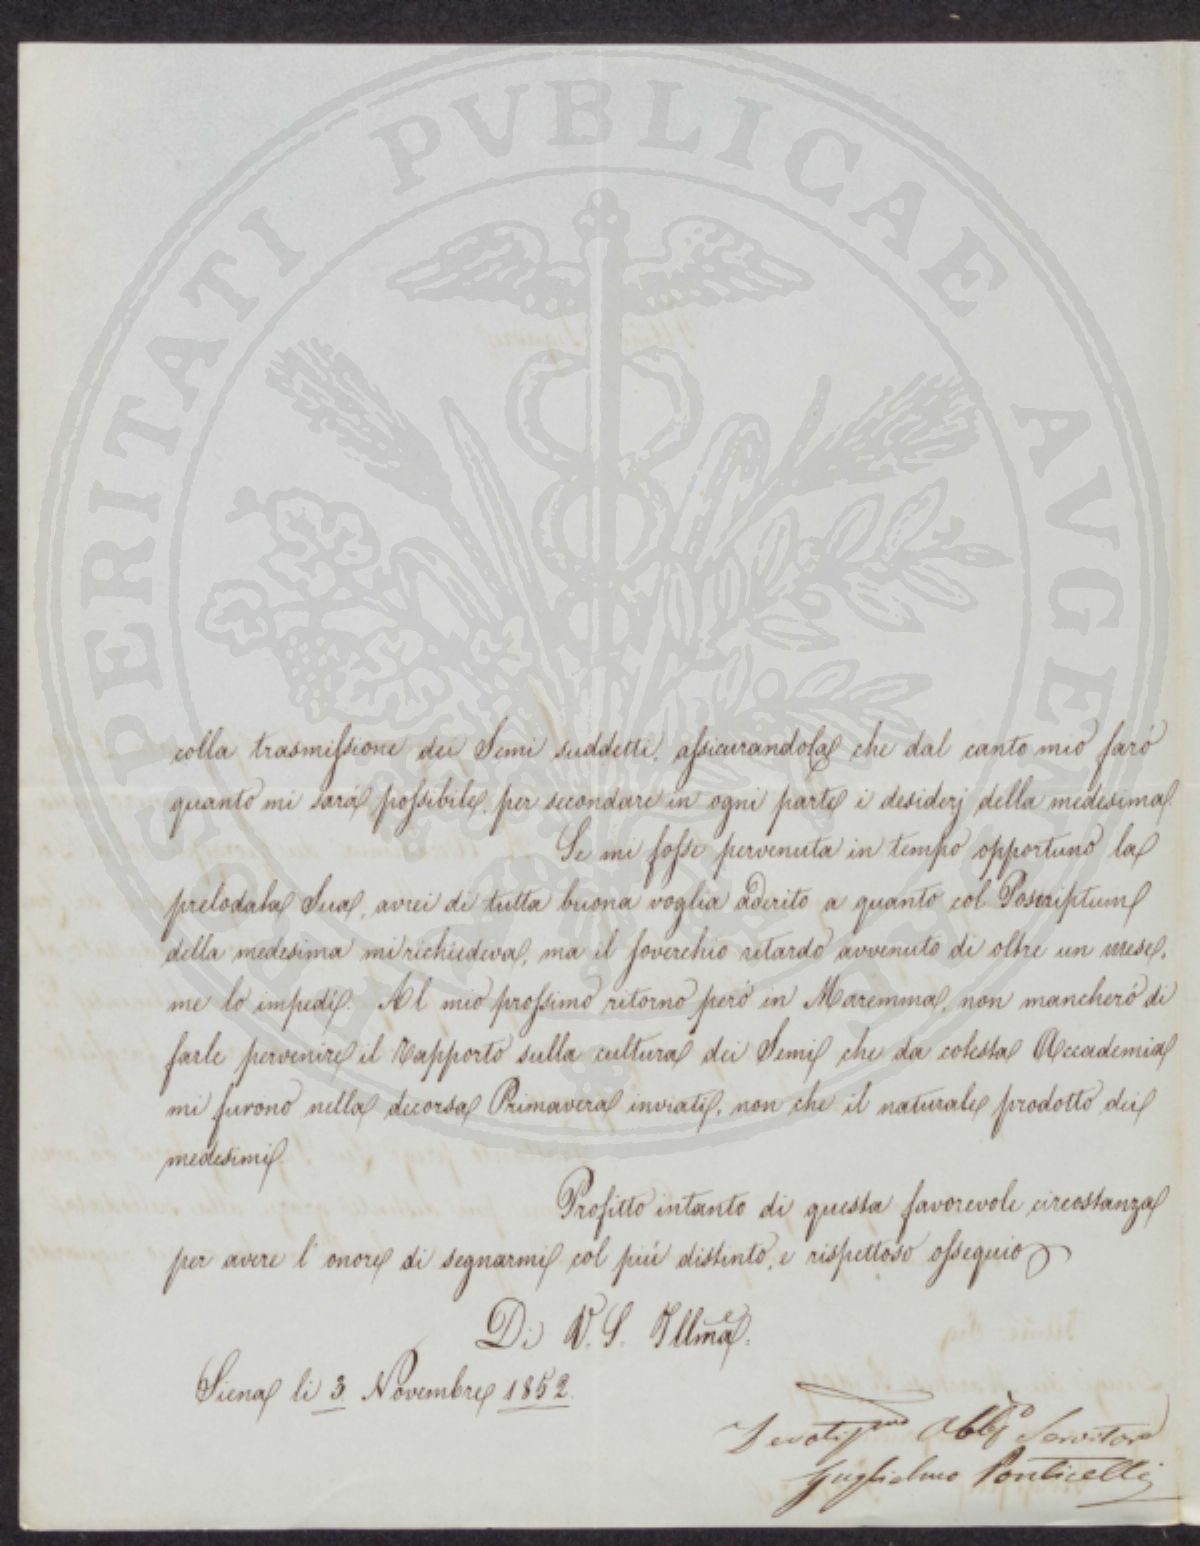 PROSPERITATI PUBLICAE AUGENDAE
colla trasmissione dei Semi suddetti, assicurandola che dal canto mio farò
quanto mi sarà possibile, per secondare in ogni parte i desiderj della medesima.
Se mi fosse pervenuta in tempo opportuno la
prelodata Sua, avrei di tutta buona voglia aderito a quanto col Poscriptum
della medesima mi richiedeva, ma il soverchio ritardo avvenuto di oltre un mese,
me lo impedì. Al mio prossimo ritorno però in Maremma, non mancherò di
farle pervenire il Rapporto sulla cultura dei Semi che da cotesta Accademia
mi furono nella decorsa Primavera inviati, non che il naturale prodotto dei
medesimi.
Profitto intanto di questa favorevole circostanza
per avere l'onore di segnarmi col più distinto, e rispettoso ossequio
Di V. S. Illma.
Siena li 3. Novembre 1852.
Devotissmo Obbgo Servitore
Guglielmo Ponticelli